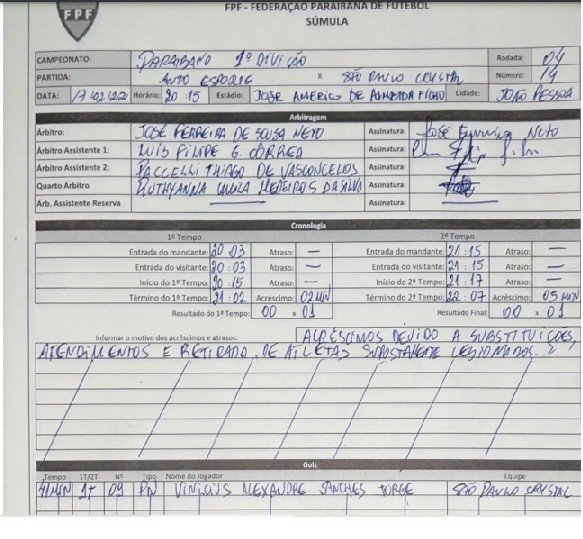 FPF
FPF - FEDERAÇÃO PARAIBANA DE FUTEBOL
SÚMULA
CAMPEONATO: PARAIBANO 1ª DIVISÃO Rodada: 04
PARTIDA: AUTO ESPORTE x SÃO PAULO CRYSTAL Número: 14
DATA: 17/02/22 Horário: 20:15 Estádio: JOSÉ AMÉRICO DE ALMEIDA FILHO Cidade: JOÃO PESSOA
Arbitragem
Árbitro: JOSÉ FERREIRA DE SOUSA NETO Assinatura: José Neto
Árbitro Assistente 1: LUIS FILIPE G. CORREA Assinatura:
Árbitro Assistente 2: PACCELLI THIAGO DE VASCONCELOS Assinatura:
Quarto Árbitro RUTHYANNA MEDEIROS DA SILVA Assinatura:
Árb. Assistente Reserva Assinatura:
Cronologia
1º Tempo 2º Tempo
Entrada do mandante: 20:03 Atraso: — Entrada do mandante: 21:15 Atraso: —
Entrada do visitante: 20:03 Atraso: — Entrada do visitante: 21:15 Atraso: —
Início do 1º Tempo: 20:15 Atraso: — Início do 2º Tempo: 21:17 Atraso: —
Término do 1º Tempo: 21:02 Acréscimo: 02 MIN Término do 2º Tempo: 22:07 Acréscimo: 05 MIN
Resultado do 1º Tempo: 00 x 01 Resultado Final: 00 x 01
Informar o motivo dos acréscimos e atrasos. ACRÉSCIMOS DEVIDO A SUBSTITUIÇÕES,
ATENDIMENTOS E RETIRADO DE ATLETAS SUPOSTAMENTE LESIONADOS.
Gols
Tempo 1T/2T Nº Tipo Nome do Jogador Equipe
41MIN 1T 09 PN VINICIUS ALEXANDRE SANCHES JORGE SÃO PAULO CRYSTAL